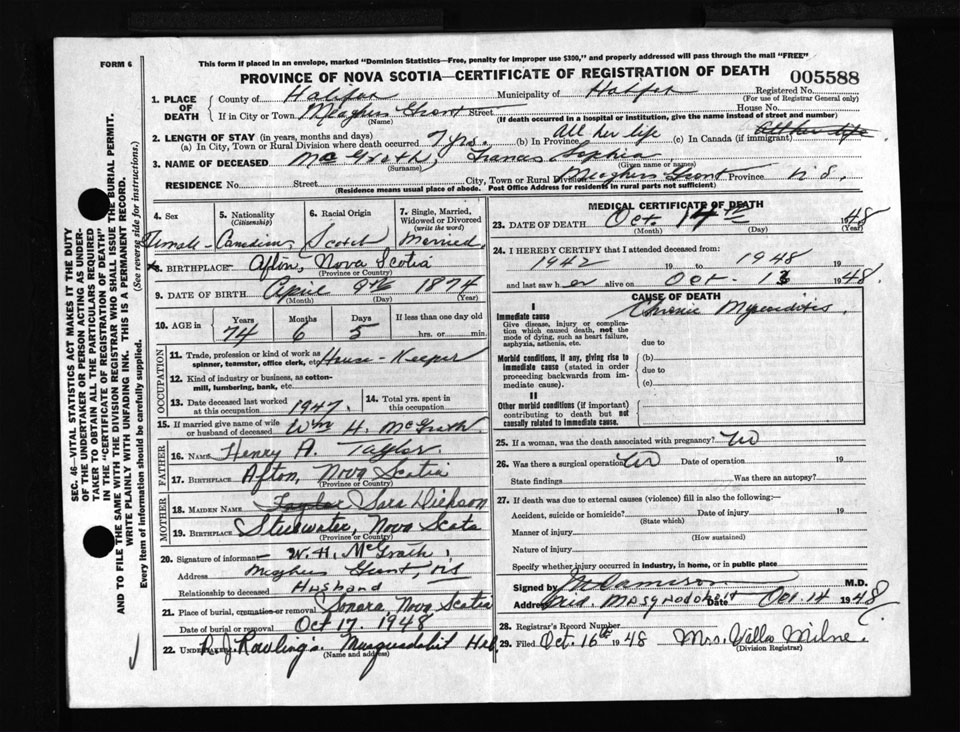 FORM 6
This form if placed in an envelope, marked "Dominion Statistics—Free, penalty for improper use $300," and properly addressed will pass through the mail "FREE"
PROVINCE OF NOVA SCOTIA—CERTIFICATE OF REGISTRATION OF DEATH 005588
1. PLACE OF DEATH
County of Halifax Municipality of Halifax Registered No.
(For use of Registrar General only)
If in City or Town Meaghers Grant Street House No.
(Name) (If death occurred in a hospital or institution, give the name instead of street and number)
2. LENGTH OF STAY (in years, months and days)
(a) In City, Town or Rural Division where death occurred 7 yrs. (b) In Province All her life (c) In Canada (if immigrant) All her life
3. NAME OF DECEASED McGrath, Francis Sophia
(Surname) (Given name or names)
RESIDENCE No. Street City, Town or Rural Division Meaghers Grant Province N.S.
(Residence means usual place of abode. Post Office Address for residents in rural parts not sufficient)
4. Sex
Female
5. Nationality (Citizenship)
Canadian
6. Racial Origin
Scotch
7. Single, Married, Widowed or Divorced (write the word)
Married
8. BIRTHPLACE Afton, Nova Scotia
(Province or Country)
9. DATE OF BIRTH April 9th 1874
(Month) (Day) (Year)
10. AGE in Years Months Days If less than one day old
74 6 5 hrs. or min.
OCCUPATION
11. Trade, profession or kind of work as spinner, teamster, office clerk, etc. House-Keeper
12. Kind of industry or business, as cotton-mill, lumbering, bank, etc.
13. Date deceased last worked at this occupation 1947. 14. Total yrs. spent in this occupation
15. If married give name of wife or husband of deceased Wm H. McGrath
FATHER
16. NAME Henry A. Taylor
17. BIRTHPLACE Afton, Nova Scotia
(Province or Country)
MOTHER
18. MAIDEN NAME Taylor Sara Dickson
19. BIRTHPLACE Stillwater, Nova Scotia
(Province or Country)
20. Signature of informant W. H. McGrath
Address Meaghers Grant, NS
Relationship to deceased Husband
21. Place of burial, cremation or removal Sonora, Nova Scotia
Date of burial or removal Oct 17, 1948
22. UNDERTAKER R J Rowlings Musquodoboit Hrb
(Name and address)
MEDICAL CERTIFICATE OF DEATH
23. DATE OF DEATH Oct 14th 1948
(Month) (Day) (Year)
24. I HEREBY CERTIFY that I attended deceased from:
1942 19 to 1948 19
and last saw her alive on Oct. 13 1948
CAUSE OF DEATH
I
Immediate cause
Give disease, injury or complication which caused death, not the mode of dying, such as heart failure, asphyxia, asthenia, etc.
Chronic Myocarditis.
due to
Morbid conditions, if any, giving rise to immediate cause (stated in order proceeding backwards from immediate cause).
(b)
due to
(c)
II
Other morbid conditions (if important) contributing to death but not causally related to immediate cause.
25. If a woman, was the death associated with pregnancy? No
26. Was there a surgical operation? No Date of operation 19
State findings Was there an autopsy?
27. If death was due to external causes (violence) fill in also the following:—
Accident, suicide or homicide? Date of injury 19
(State which)
Manner of injury
(How sustained)
Nature of injury
Specify whether injury occurred in industry, in home, or in public place
Signed by Jamieson M.D.
Address Mid. Musquodoboit Date Oct. 14 1948
28. Registrar's Record Number
29. Filed Oct. 16th 1948 Mrs. Villa Milne
(Division Registrar)
SEC. 46—VITAL STATISTICS ACT MAKES IT THE DUTY
OF THE UNDERTAKER OR PERSON ACTING AS UNDERTAKER
TO OBTAIN ALL THE PARTICULARS REQUIRED
IN THE "CERTIFICATE OF REGISTRATION OF DEATH"
AND TO FILE THE SAME WITH THE DIVISION REGISTRAR WHO SHALL ISSUE THE BURIAL PERMIT.
WRITE PLAINLY WITH UNFADING INK. THIS IS A PERMANENT RECORD.
Every item of information should be carefully supplied. (See reverse side for instructions.)